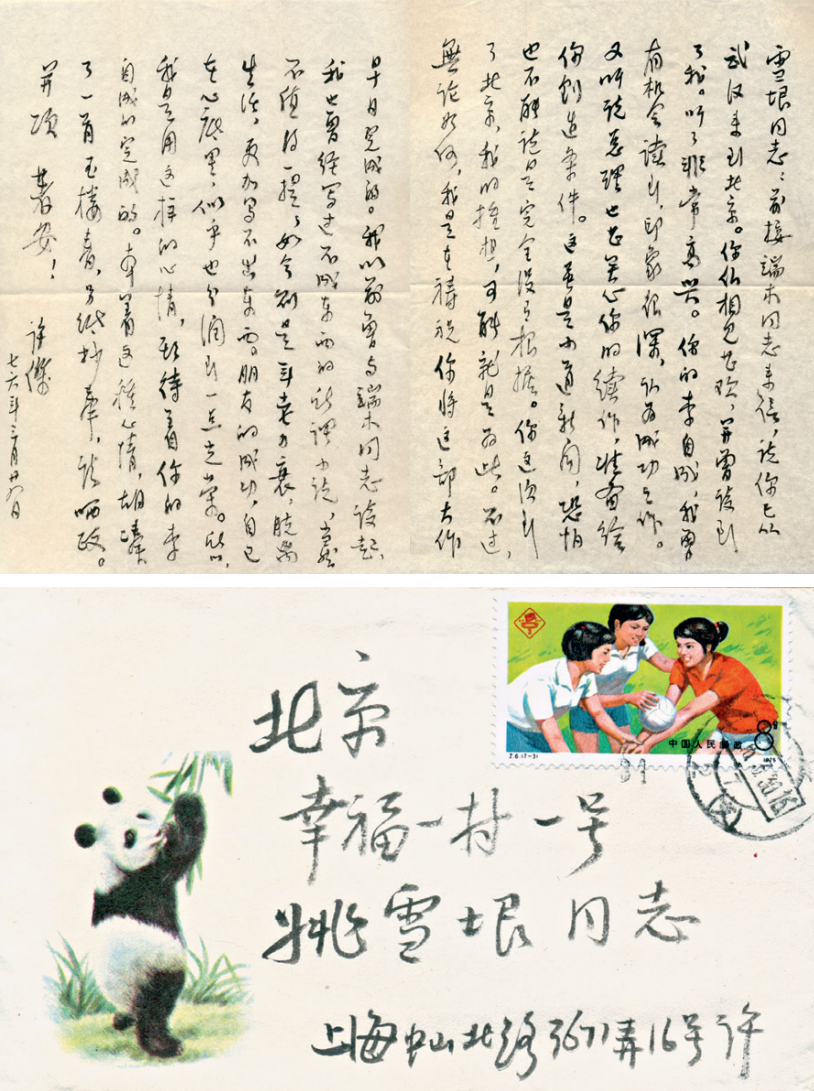 雪垠同志：前接端木同志来信，说你已从
武汉来到北京。你们相见甚欢，并曾谈到
了我。听了非常高兴。你的李自成，我曾
有机会读到，印象很深，认为成功之作。
又听说总理也甚关心你的续作，准备给
你创造条件。这虽是小道新闻，恐怕
也不能说是完全没有根据。你这次到
了北京，我的推想，可能就是为此。不过，
無论如何，我是在祷祝你将这部大作
早日完成的。我以前曾与端木同志谈起，
我也曾经写过不成东西的所谓小说，当然
不值得一提；如今则是年老力衰，脱离
生活，更加写不出东西。朋友的成功，自己
在心底里，似乎也分润到一点光荣。所以，
我是用这样的心情，期待着你的李
自成的完成的。本着这种心情，胡诌
了一首玉楼春，另纸抄奉，请哂政。
并颂 著安！
许杰
七六年三月廿九日
8分
中国人民邮政
1975
北京
幸福一村一号
姚雪垠同志
上海中山北路3671弄16号许